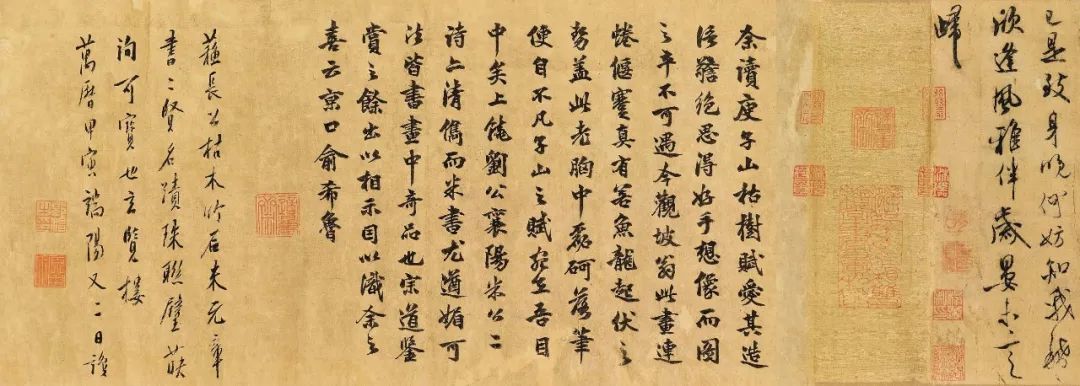 已是致身晚何妨知我稀
欣逢風雅伴歲晏未言
歸
余讀庾子山枯樹賦愛其造
語警絕思得好手想像而圖
之卒不可遇今觀坡翁此畫連
蜷偃蹇真有若魚龍起伏之
勢蓋此老胸中磊砢落筆
便自不凡子山之賦宛在吾目
中矣上饒劉公襄陽米公二
詩亦清儁而米書尤遒媚可
法皆書畫中奇品也宗道鑒
賞之餘出以相示因以識余之
喜云京口俞希魯
蘇長公枯木竹石米元章
書二賢名蹟珠聯璧莢
洵可寶也玄覽樓
萬曆甲寅端陽又二日識